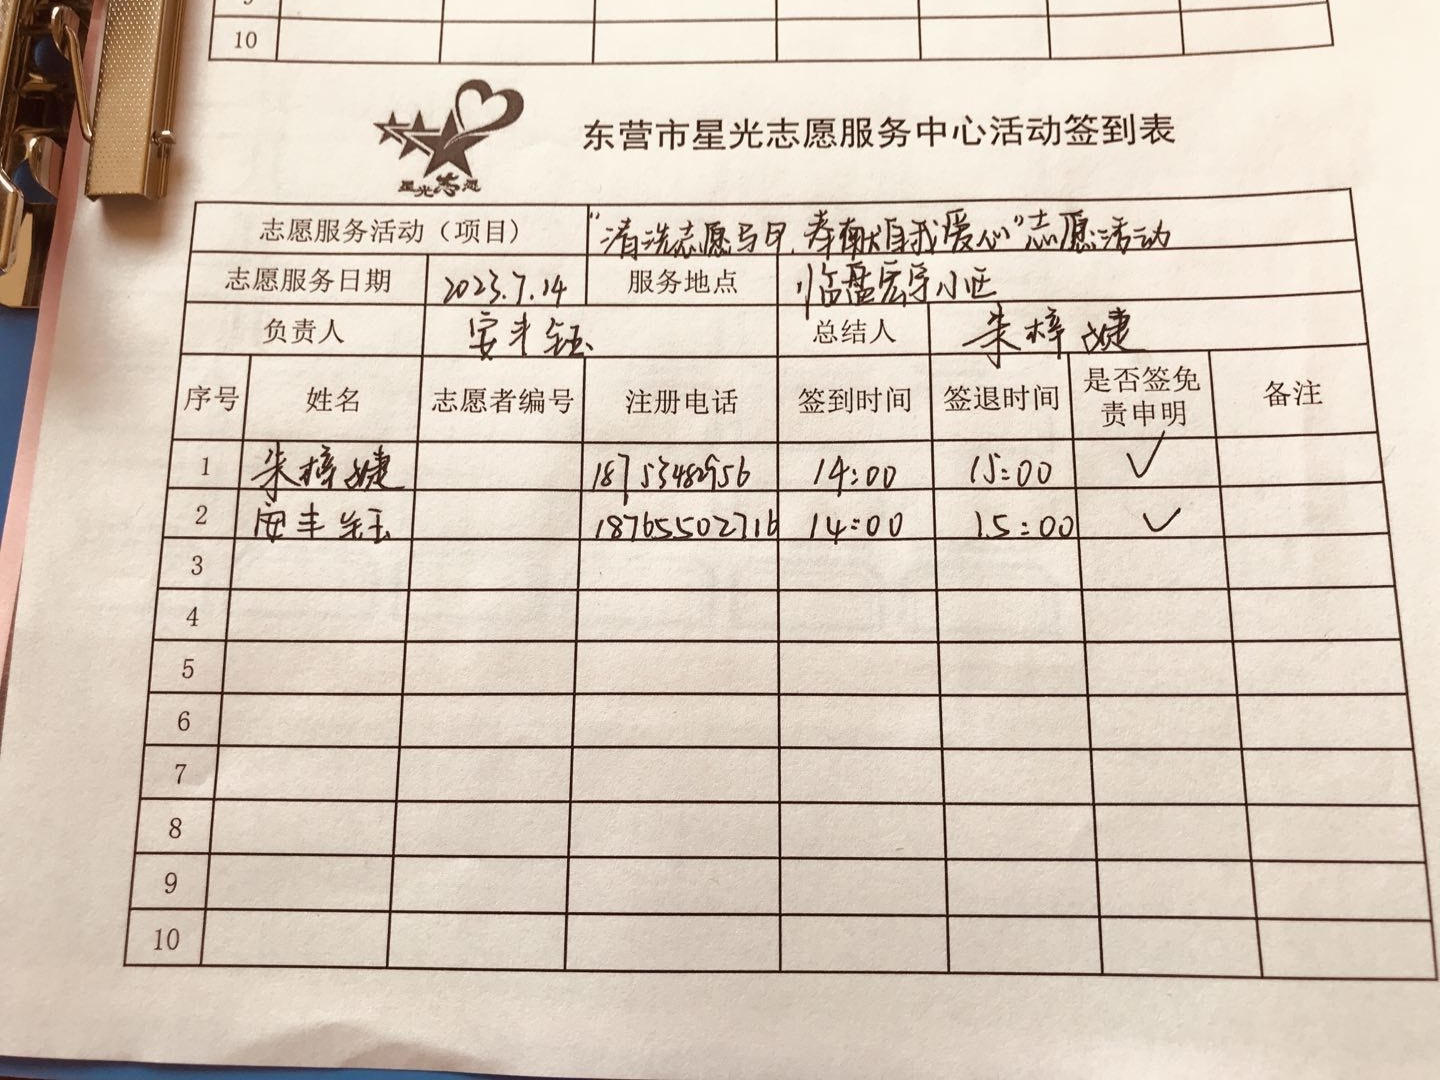 10
星光志愿
东营市星光志愿服务中心活动签到表
志愿服务活动（项目） “清洗志愿马甲，奉献自我爱心”志愿活动
志愿服务日期 2023.7.14 服务地点 临盘宏宇小区
负责人 安丰钰 总结人 朱梓婕
序号 姓名 志愿者编号 注册电话 签到时间 签退时间 是否签免责申明 备注
1 朱梓婕 18753482956 14:00 15:00 ✓
2 安丰钰 18765502716 14:00 15:00 ✓
3
4
5
6
7
8
9
10